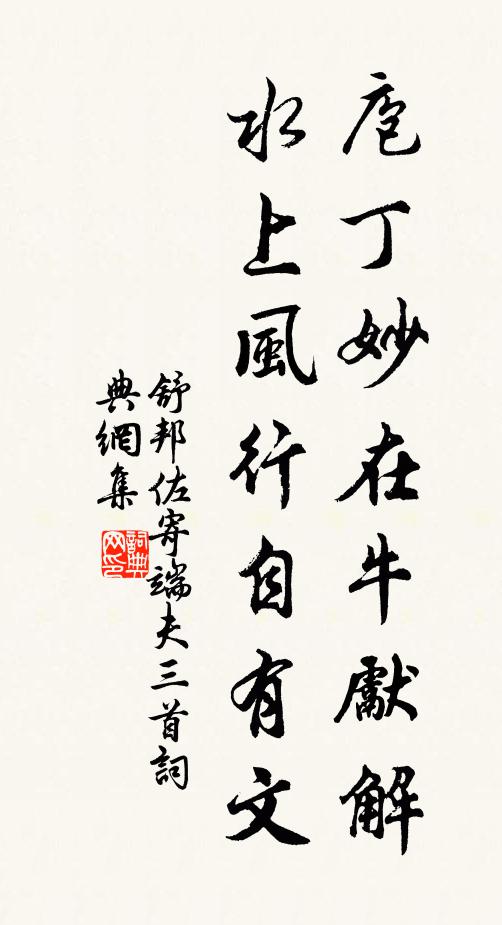 庖丁妙在牛獻解
水上風行自有文
舒邦佐寄端夫三首詞
典網集
詞典
网印